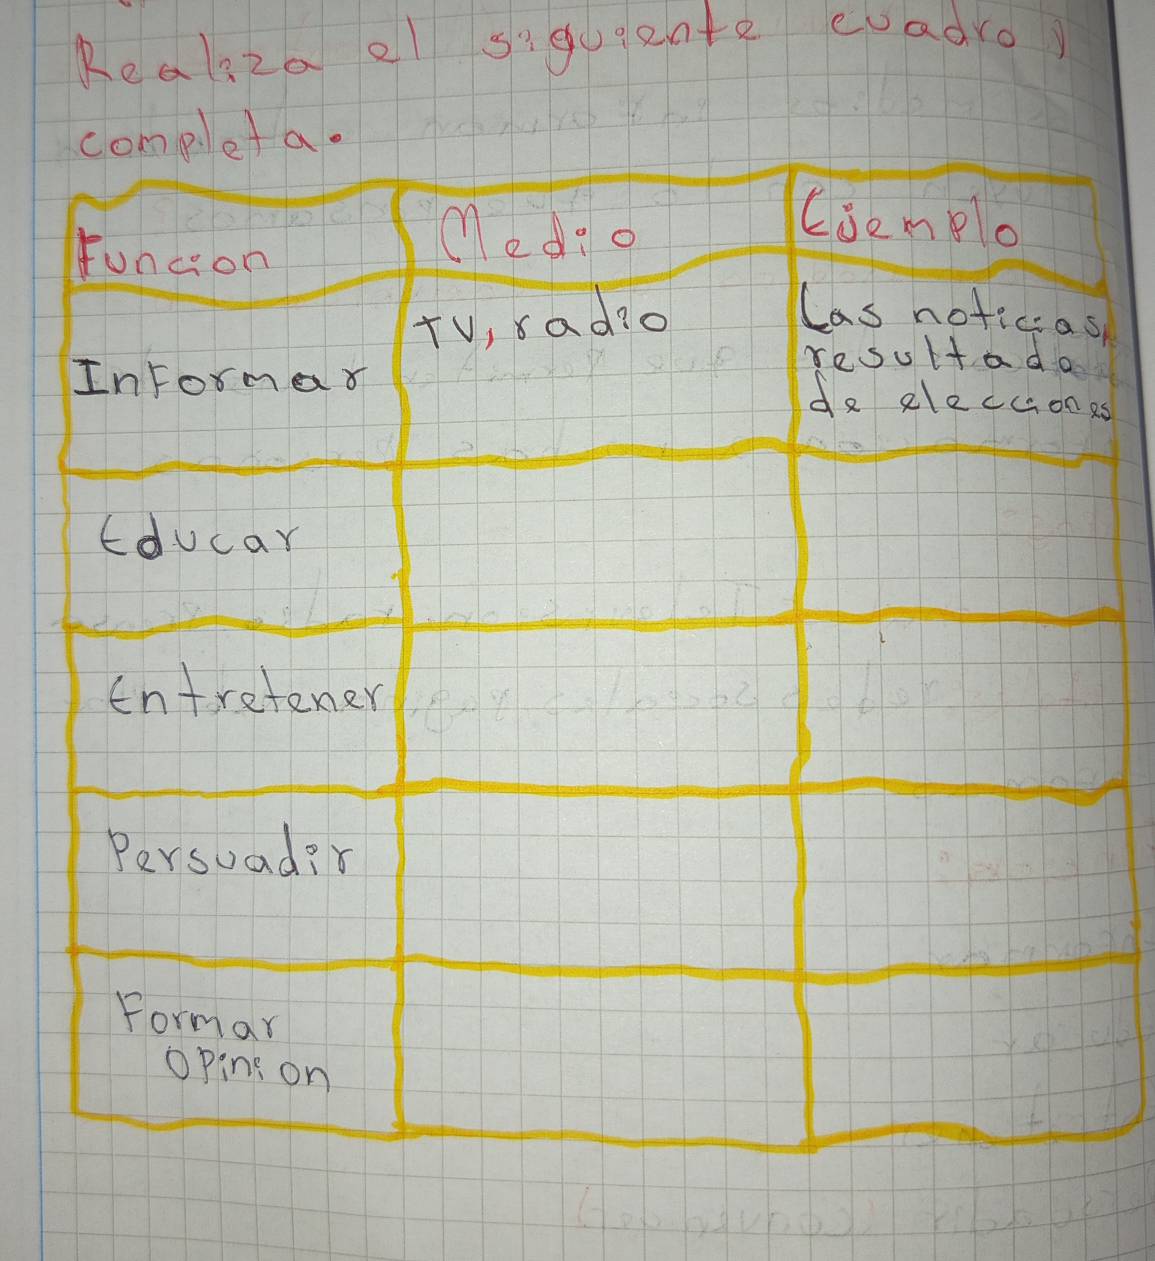 Realiza el siguiente cuadro y
completa.
Funcion Medio Ejemplo
Informar TV, radio Las noticias,
resultado
de elecciones
Educar
Entretener
Persuadir
Formar
Opinion